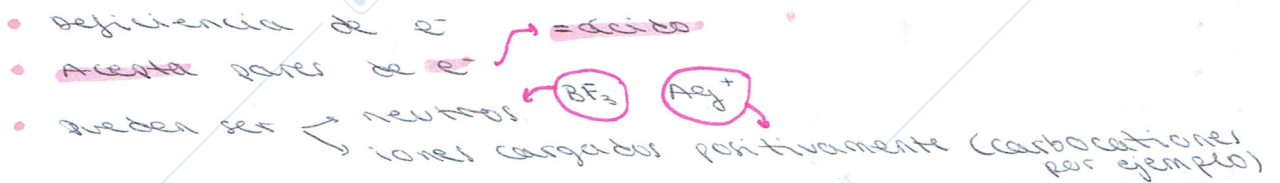 • Deficiencia de e-
• Acepta pares de e- → =ácido
• pueden ser → neutros ← BF₃ Ag⁺
→ iones cargados positivamente (carbocationes
por ejemplo)